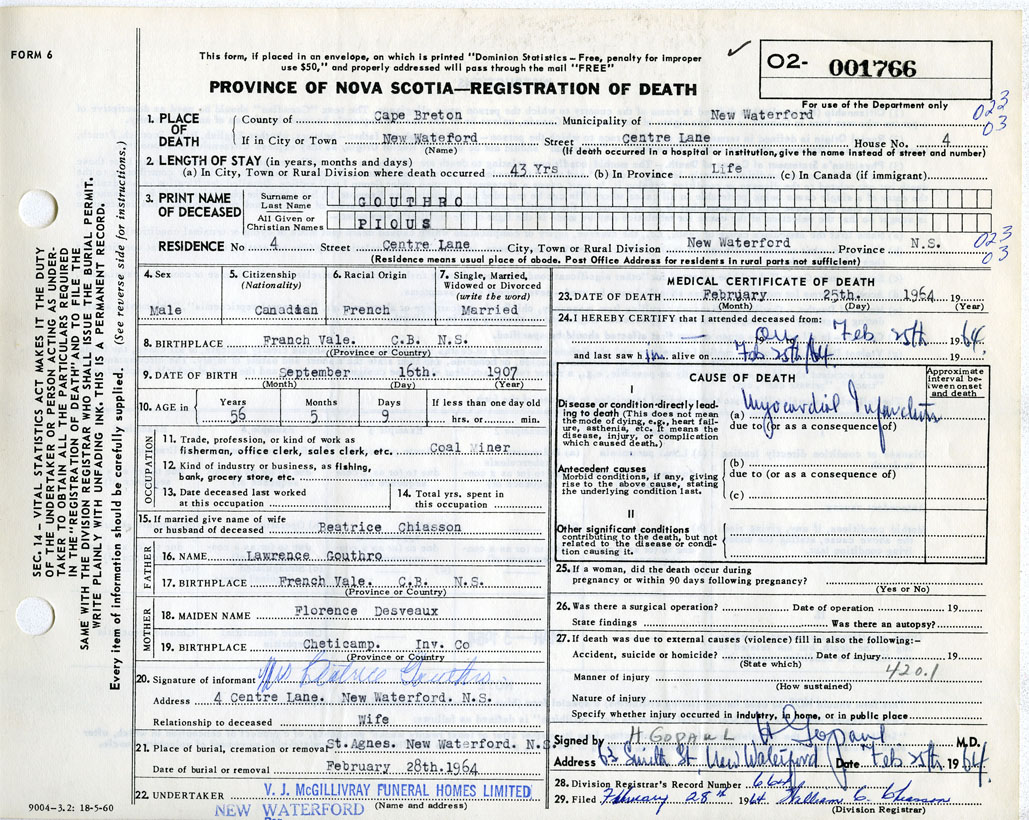 FORM 6
This form, if placed in an envelope, on which is printed "Dominion Statistics – Free, penalty for improper
use $50," and properly addressed will pass through the mail "FREE"
PROVINCE OF NOVA SCOTIA—REGISTRATION OF DEATH
O2- 001766
For use of the Department only
023
03
SEC. 14 – VITAL STATISTICS ACT MAKES IT THE DUTY
OF THE UNDERTAKER OR PERSON ACTING AS UNDER-
TAKER TO OBTAIN ALL THE PARTICULARS REQUIRED
IN THE "REGISTRATION OF DEATH" AND TO FILE THE
SAME WITH THE DIVISION REGISTRAR WHO SHALL ISSUE THE BURIAL PERMIT.
WRITE PLAINLY WITH UNFADING INK. THIS IS A PERMANENT RECORD.
Every item of information should be carefully supplied. (See reverse side for instructions.)
1. PLACE OF DEATH
County of Cape Breton Municipality of New Waterford
If in City or Town New Wateford Street Centre Lane House No. 4
(Name) (If death occurred in a hospital or institution, give the name instead of street and number)
2. LENGTH OF STAY (in years, months and days)
(a) In City, Town or Rural Division where death occurred 43 Yrs (b) In Province Life (c) In Canada (if immigrant)
3. PRINT NAME OF DECEASED
Surname or Last Name GOUTHRO
All Given or Christian Names PIOUS
023
03
RESIDENCE No 4 Street Centre Lane City, Town or Rural Division New Waterford Province N.S.
(Residence means usual place of abode. Post Office Address for residents in rural parts not sufficient)
4. Sex
Male
5. Citizenship
(Nationality)
Canadian
6. Racial Origin
French
7. Single, Married,
Widowed or Divorced
(write the word)
Married
8. BIRTHPLACE Franch Vale. C.B. N.S.
(Province or Country)
9. DATE OF BIRTH September 16th. 1907
(Month) (Day) (Year)
10. AGE in Years 56 Months 5 Days 9 If less than one day old
hrs. or min.
OCCUPATION
11. Trade, profession, or kind of work as
fisherman, office clerk, sales clerk, etc. Coal Miner
12. Kind of industry or business, as fishing,
bank, grocery store, etc.
13. Date deceased last worked
at this occupation
14. Total yrs. spent in
this occupation
15. If married give name of wife
or husband of deceased Beatrice Chiasson
FATHER
16. NAME Lawrence Gouthro
17. BIRTHPLACE French Vale. C.B. N.S.
(Province or Country)
MOTHER
18. MAIDEN NAME Florence Desveaux
19. BIRTHPLACE Cheticamp. Inv. Co
(Province or Country)
20. Signature of informant Mrs Beatrice Gouthro.
Address 4 Centre Lane. New Waterford. N.S.
Relationship to deceased Wife
21. Place of burial, cremation or removal St.Agnes. New Waterford. N.S
Date of burial or removal February 28th.1964
22. UNDERTAKER V. J. McGILLIVRAY FUNERAL HOMES LIMITED
(Name and address)
NEW WATERFORD
9004–3.2: 18-5-60
MEDICAL CERTIFICATE OF DEATH
23. DATE OF DEATH February 25th. 1964 19
(Month) (Day) (Year)
24. I HEREBY CERTIFY that I attended deceased from:
— on Feb 25th 1964.
and last saw him alive on Feb 25th/64. 19
CAUSE OF DEATH
Approximate
interval be-
tween onset
and death
I
Disease or condition directly lead-
ing to death (This does not mean
the mode of dying, e.g., heart fail-
ure, asthenia, etc. It means the
disease, injury, or complication
which caused death.)
(a) Myocardial Infarction
due to (or as a consequence of)
Antecedent causes
Morbid conditions, if any, giving
rise to the above cause, stating
the underlying condition last.
(b)
due to (or as a consequence of)
(c)
II
Other significant conditions
contributing to the death, but not
related to the disease or condi-
tion causing it.
25. If a woman, did the death occur during
pregnancy or within 90 days following pregnancy?
(Yes or No)
26. Was there a surgical operation? Date of operation 19
State findings Was there an autopsy?
27. If death was due to external causes (violence) fill in also the following:–
Accident, suicide or homicide? Date of injury 19
(State which)
4201
Manner of injury
(How sustained)
Nature of injury
Specify whether injury occurred in industry, in home, or in public place
Signed by H GOPAUL H Gopaul M.D.
Address 63 Smith St, New Waterford Date Feb 25th 1964.
28. Division Registrar's Record Number 664
29. Filed February 28th 1964 William C Chiasson
(Division Registrar)